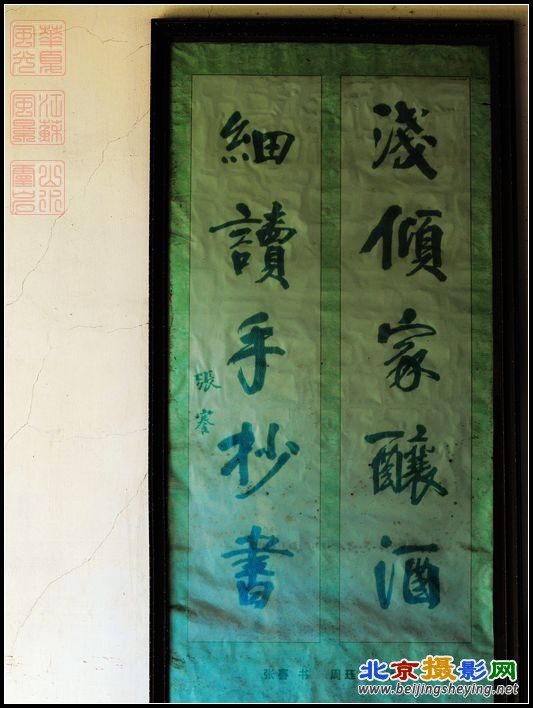 淺傾家釀酒
細讀手抄書
張謇
张謇 书 周珏
華夏風光
江蘇風景
北京摄影网
www.beijingsheying.net